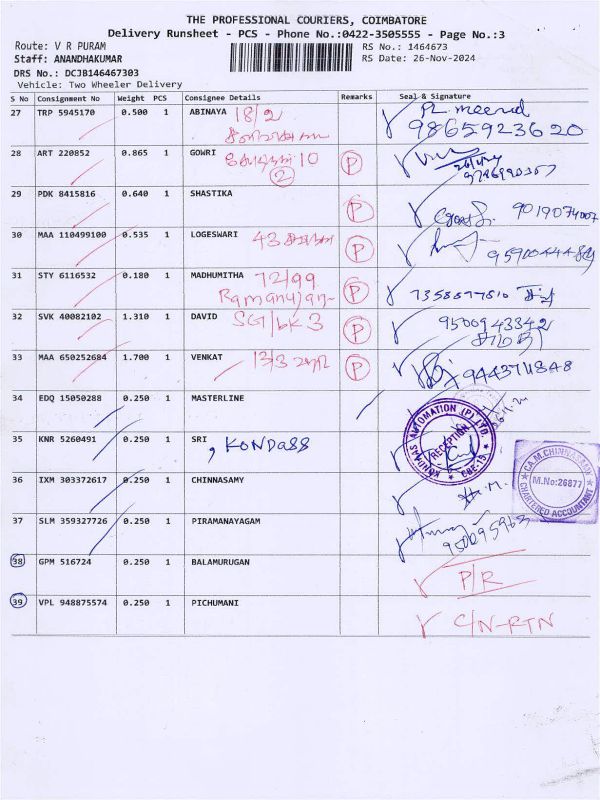 THE PROFESSIONAL COURIERS, COIMBATORE
Delivery Runsheet - PCS - Phone No.:0422-3505555 - Page No.:3
Route: V R PURAM
RS No.: 1464673
Staff: ANANDHAKUMAR
RS Date: 26-Nov-2024
DRS No.: DCJB146467303
Vehicle: Two Wheeler Delivery
S No Consignment No Weight PCS Consignee Details Remarks Seal & Signature
27 TRP 5945170 0.500 1 ABINAYA 18/2
9865923620
28 ART 220852 0.865 1 GOWRI 10 P
2
29 PDK 8415816 0.640 1 SHASTIKA P
9019074007
30 MAA 110499100 0.535 1 LOGESWARI 43 P
31 STY 6116532 0.180 1 MADHUMITHA 72/99 P
Ramanujan
32 SVK 40082102 1.310 1 DAVID P 9500943342
33 MAA 650252684 1.700 1 VENKAT 13/3 P
34 EDQ 15050288 0.250 1 MASTERLINE
35 KNR 5260491 0.250 1 SRI , KONDASS
KONDAAS AUTOMATION (P) LTD.
RECEPTION
CBE-15
36 IXM 303372617 0.250 1 CHINNASAMY
CA.M.CHINNASAMY
M.No:26877
CHARTERED ACCOUNTANT
37 SLM 359327726 0.250 1 PIRAMANAYAGAM
38 GPM 516724 0.250 1 BALAMURUGAN P/R
39 VPL 948875574 0.250 1 PICHUMANI C/N-RTN